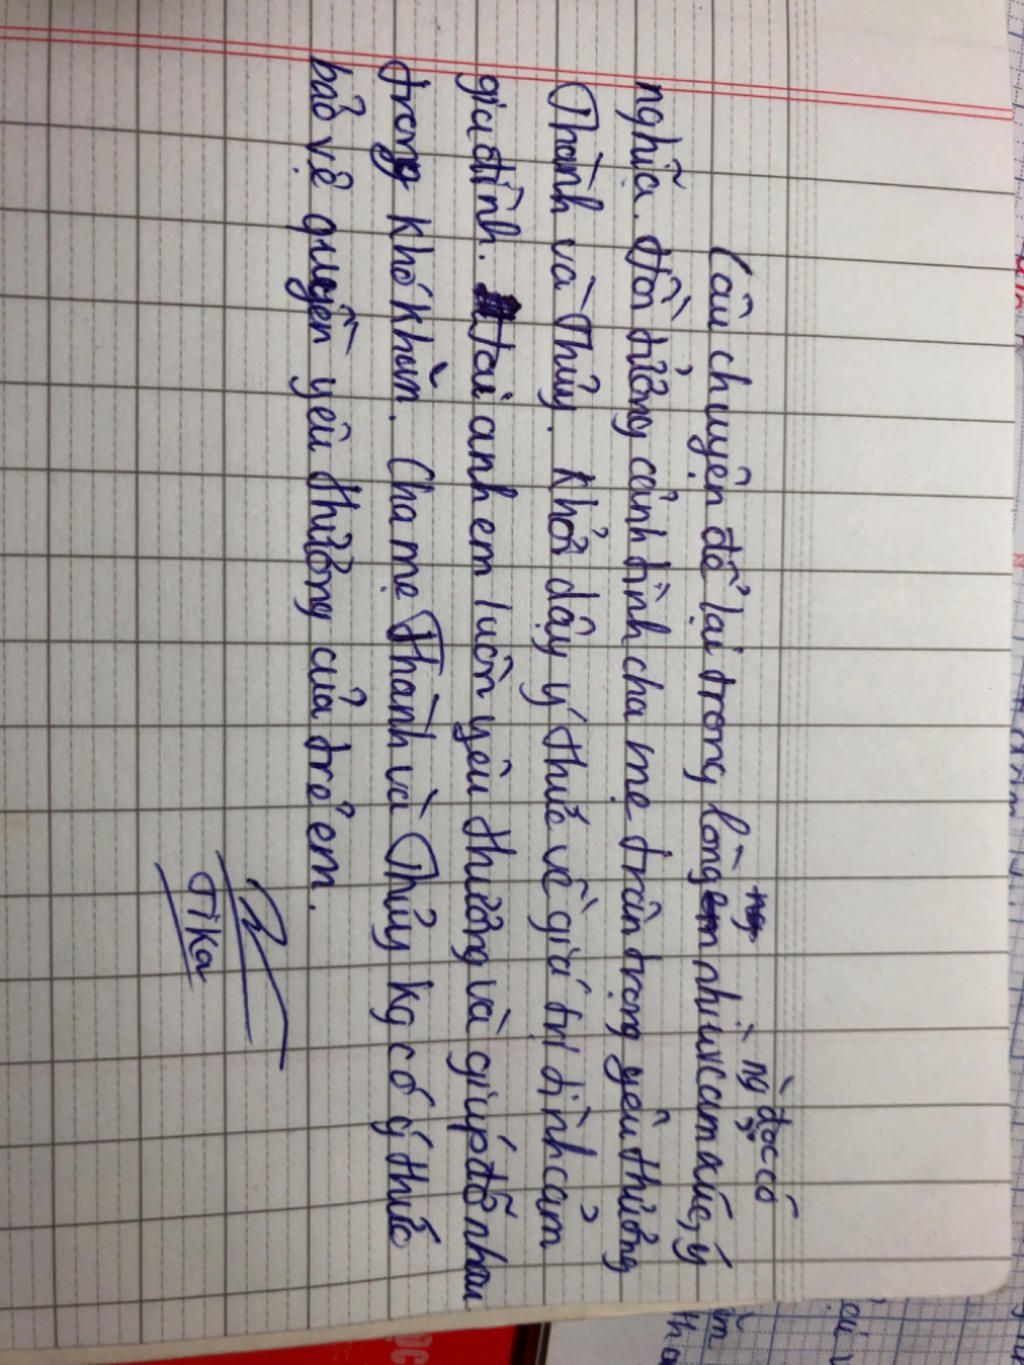 ng đọc có
Câu chuyện để lại trong lòng nhiều cảm xúc, ý
nghĩa. đồn tưởng cảnh tình cha mẹ trân trọng yêu thương
Thành và Thủy. khơi dậy ý thức về giá trị tình cảm
gia đình. Hai anh em luôn yêu thương và giúp đỡ nhau
trong khó khăn. Cha mẹ Thành và Thủy kg có ý thức
bảo vệ quyền yêu thương của trẻ em.
Tika